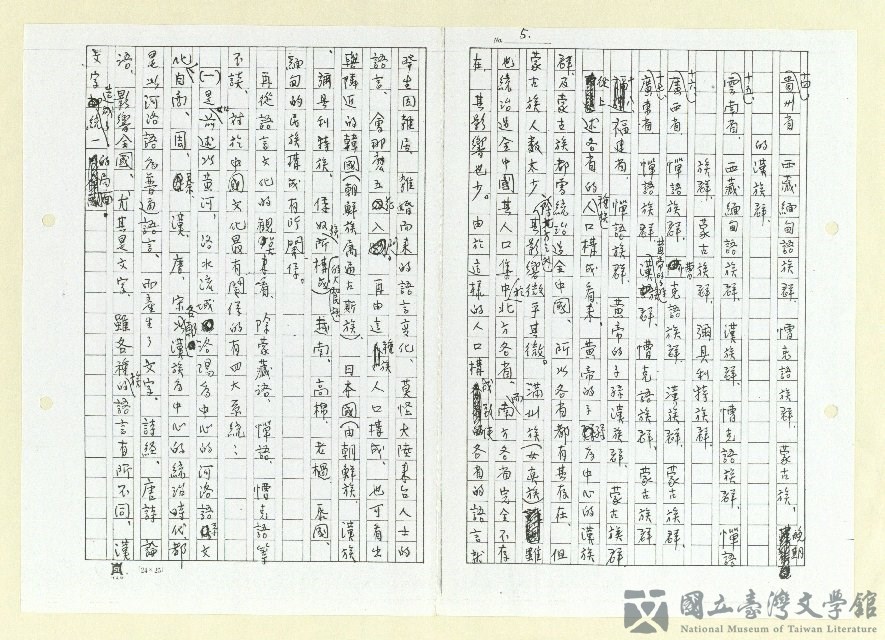 No. 5.
十四、貴州省 西藏緬甸語族群、懵克語族群、蒙古族、晚期
的漢族群。
十五、雲南省、西藏緬甸語族群、漢族群、懵克語族群、憚語
族群、蒙古族群、彌具利特族群。
十六、廣西省、憚語族群、黃帝的子孫漢族群、蒙古族群、
十七、廣東省、憚語族群、漢族群、懵克語族群、蒙古族群、
十八、福建省、憚語族群、黃帝的子孫漢族群、蒙古族群
從上述各省的人口種族構成看來、黃帝的子孫為中心的漢族
群及蒙古族都曾統治過全中國、所以各省都有其存在、但
蒙古族人數太少、其影響微乎其微。滿州族（女真族）雖
也統治過全中國其人口集中於北方各省、而南方各省完全不存
在、其影響也少。由於這樣的人口構成致使各省的語言就
發生困難、雜婚而來的語言變化、莫怪大陸來台人士的
語言、會那麼五花八門。再由這種族人口構成、也可看出
與隣近的韓國（朝鮮族屬通古斯族）、日本國（由朝鮮族、漢族
彌具利特族、倭奴族所構成的大和族）、越南、高棉、老檛、泰國、
緬甸的民族構成有所關係。
再從語言文化的觀點來看、除蒙藏語、憚語、懵克語等
不談、對於中國文化最有關係的有四大系統：
(一)是前述以黃河、洛水流域洛陽為中心的河洛語系文
化自商、周、秦、漢、唐、宋各朝漢族為中心的統治時代、都
是以河洛語為普通語言、而產生了文字、詩經、唐詩、論
語、影響全國、尤其是文字、雖各種族的語言有所不同、漢
文字造成了統一的局面。
24×25
國立臺灣文學館
National Museum of Taiwan Literature